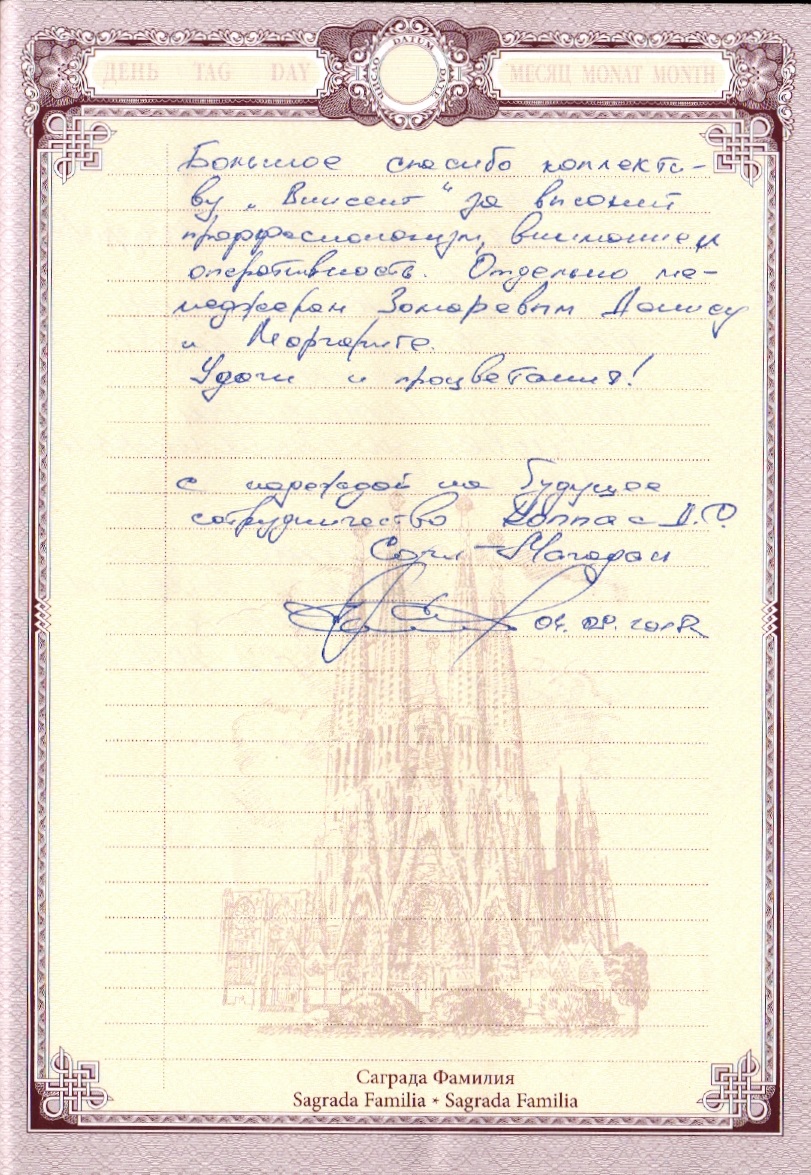 ДЕНЬ TAG DAY DATUM МЕСЯЦ MONAT MONTH
Большое спасибо коллекти-
ву „Винсент“ за высокий
профессионализм, внимание и
оперативность. Отдельно ме-
неджерам Зомаревым Денису
и Маргарите.
Удачи и процветания!
с надеждой на будущее
сотрудничество
Сочи-Магадан
2018
Саграда Фамилия
Sagrada Familia * Sagrada Familia